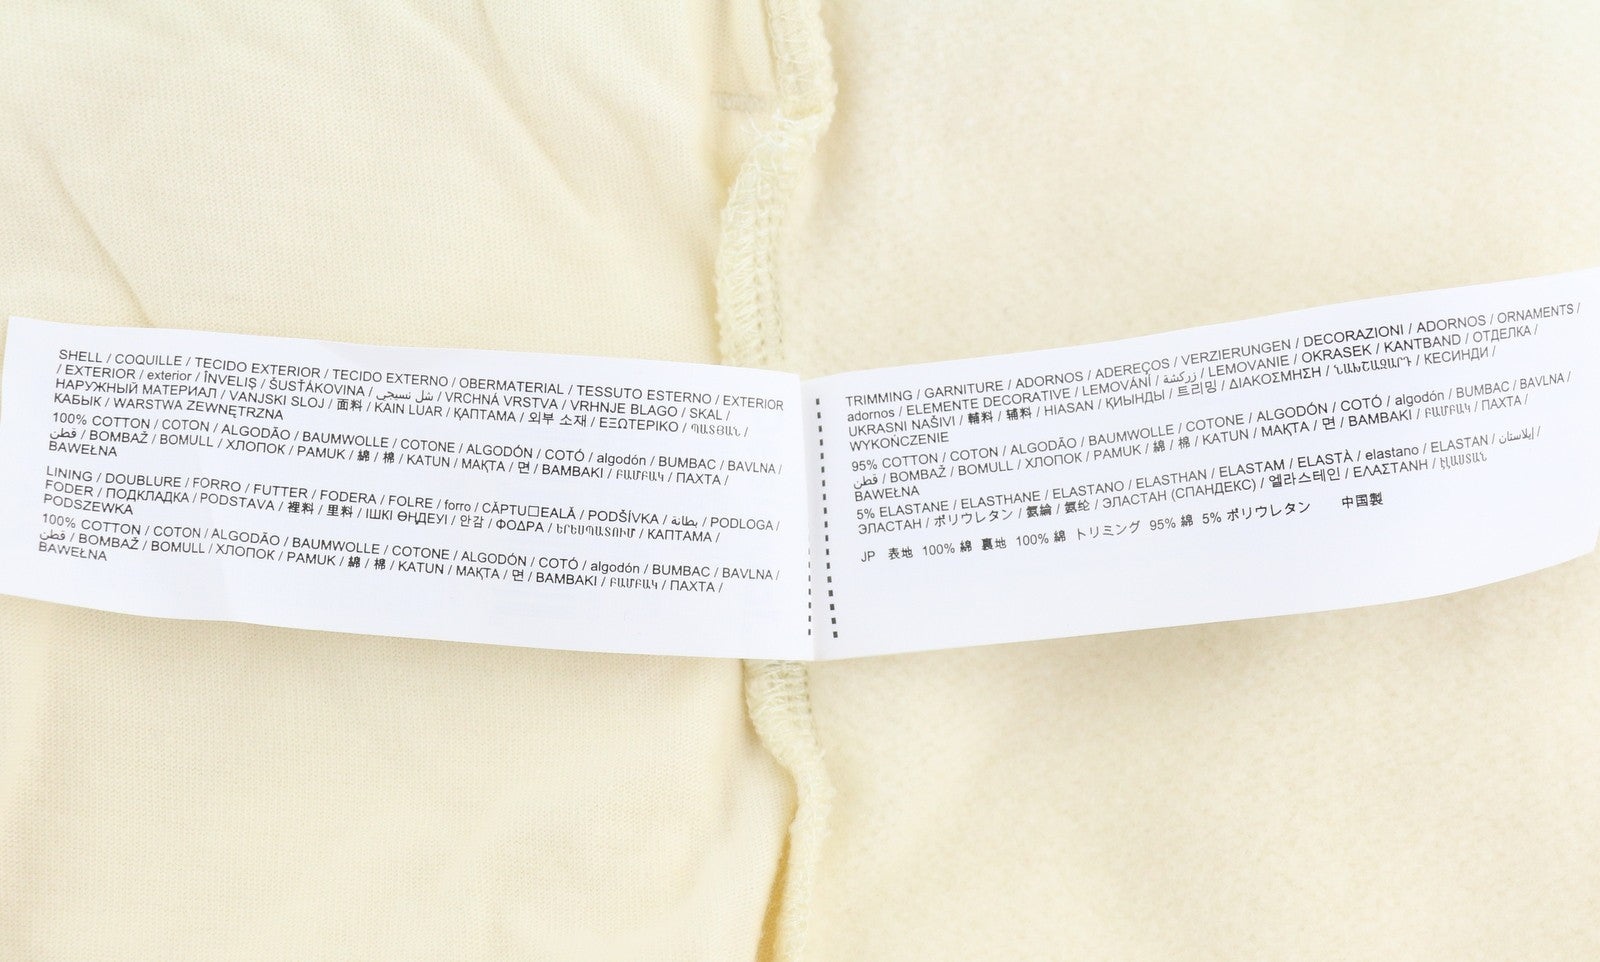 SHELL / COQUILLE / TECIDO EXTERIOR / TECIDO EXTERNO / OBERMATERIAL / TESSUTO ESTERNO / EXTERIOR
/ EXTERIOR / exterior / ÎNVELIȘ / ŠUSŤÁKOVINA / شل نسيجي / VRCHNÁ VRSTVA / VRHNJE BLAGO / SKAL /
НАРУЖНЫЙ МАТЕРИАЛ / VANJSKI SLOJ / 面料 / KAIN LUAR / ҚАПТАМА / 외부 소재 / ΕΞΩΤΕΡΙΚΟ / ՊԱՏՅԱՆ /
КАБЫК / WARSTWA ZEWNĘTRZNA
100% COTTON / COTON / ALGODÃO / BAUMWOLLE / COTONE / ALGODÓN / COTÓ / algodón / BUMBAC / BAVLNA /
قطن / BOMBAŽ / BOMULL / ХЛОПОК / PAMUK / 綿 / 棉 / KATUN / МАҚТА / 면 / ΒΑΜΒΑΚΙ / ԲԱՄԲԱԿ / ПАХТА /
BAWEŁNA
LINING / DOUBLURE / FORRO / FUTTER / FODERA / FOLRE / forro / CĂPTU□EALĂ / PODŠÍVKA / بطانة / PODLOGA /
FODER / ПОДКЛАДКА / PODSTAVA / 裡料 / 里料 / ІШКІ ӨҢДЕУІ / 안감 / ΦΟΔΡΑ / ԵՐԵՍՊԱՏՈՒՄ / КАПТАМА /
PODSZEWKA
100% COTTON / COTON / ALGODÃO / BAUMWOLLE / COTONE / ALGODÓN / COTÓ / algodón / BUMBAC / BAVLNA /
قطن / BOMBAŽ / BOMULL / ХЛОПОК / PAMUK / 綿 / 棉 / KATUN / МАҚТА / 면 / ΒΑΜΒΑΚΙ / ԲԱՄԲԱԿ / ПАХТА /
BAWEŁNA
TRIMMING / GARNITURE / ADORNOS / ADEREÇOS / VERZIERUNGEN / DECORAZIONI / ADORNOS / ORNAMENTS /
adornos / ELEMENTE DECORATIVE / LEMOVÁNÍ / زركشة / LEMOVANIE / OKRASEK / KANTBAND / ОТДЕЛКА /
UKRASNI NAŠIVI / 輔料 / 辅料 / HIASAN / ҚИЫНДЫ / 트리밍 / ΔΙΑΚΟΣΜΗΣΗ / ՆԱԽՇԱԶԱՐԴ / КЕСИНДИ /
WYKOŃCZENIE
95% COTTON / COTON / ALGODÃO / BAUMWOLLE / COTONE / ALGODÓN / COTÓ / algodón / BUMBAC / BAVLNA /
قطن / BOMBAŽ / BOMULL / ХЛОПОК / PAMUK / 綿 / 棉 / KATUN / МАҚТА / 면 / ΒΑΜΒΑΚΙ / ԲԱՄԲԱԿ / ПАХТА /
BAWEŁNA
5% ELASTANE / ELASTHANE / ELASTANO / ELASTHAN / ELASTAM / ELASTÀ / elastano / ELASTAN / إيلاستان /
ЭЛАСТАН / ポリウレタン / 氨綸 / 氨纶 / ЭЛАСТАН (СПАНДЕКС) / 엘라스테인 / ΕΛΑΣΤΑΝΗ / ԷԼԱՍՏԱՆ
JP 表地 100% 綿 裏地 100% 綿 トリミング 95% 綿 5% ポリウレタン 中国製